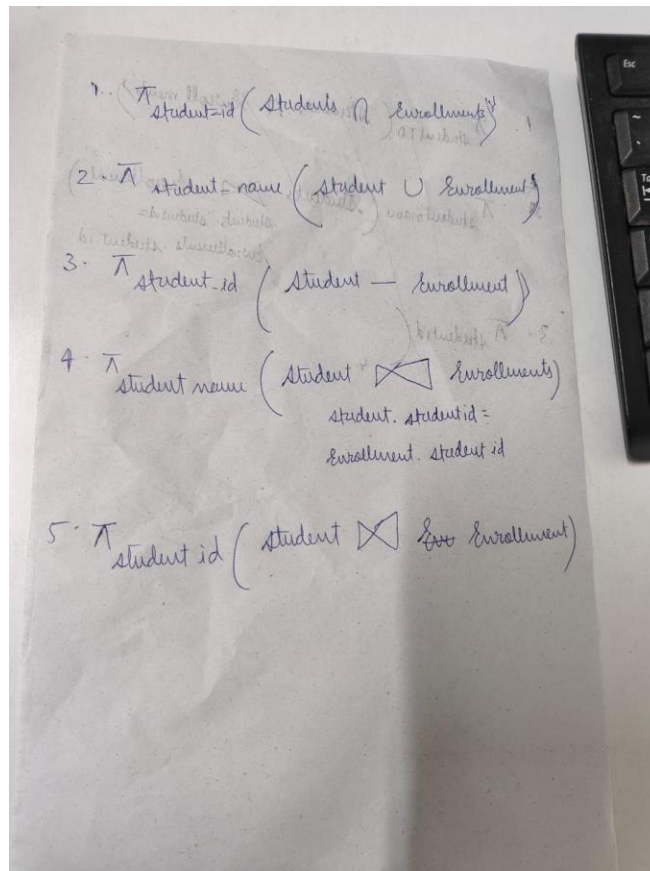 1. π student-id ( Students ∩ Enrollments )
2. π student-name ( student ∪ Enrollment )
3. π student-id ( Student — Enrollment )
4. π student name ( student ⋈ Enrollments )
student. studentid =
Enrollment. student id
5. π student id ( student ⋈ Enrollment )
Esc
~